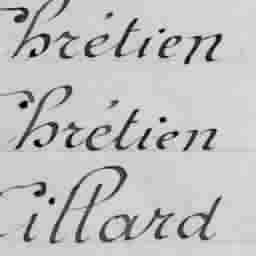 Chrétien
Chrétien
Cillard